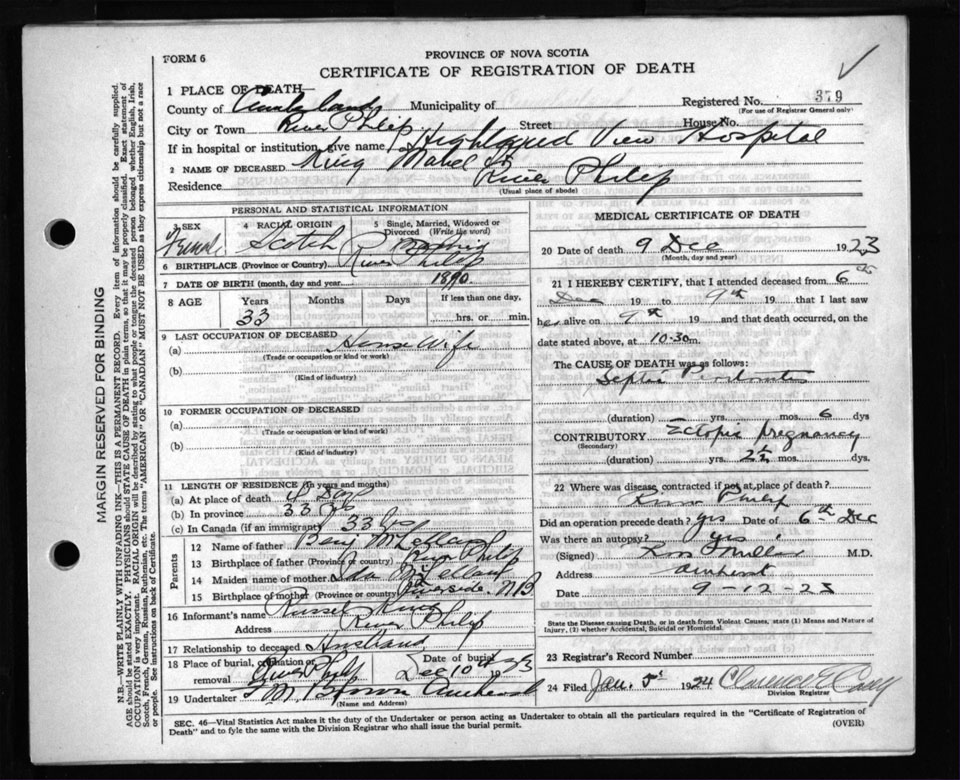 FORM 6
PROVINCE OF NOVA SCOTIA
CERTIFICATE OF REGISTRATION OF DEATH
1 PLACE OF DEATH—
County of Cumberland Municipality of
Registered No. 379
(For use of Registrar General only)
City or Town River Philip Street House No.
If in hospital or institution, give name Highland View Hospital
2 NAME OF DECEASED King Mabel
Residence River Philip
(Usual place of abode)
PERSONAL AND STATISTICAL INFORMATION
3 SEX Female
4 RACIAL ORIGIN Scotch
5 Single, Married, Widowed or Divorced (Write the word) Married
6 BIRTHPLACE (Province or Country) River Philip
7 DATE OF BIRTH (month, day and year) 1890.
8 AGE Years Months Days If less than one day,
33 hrs. or min.
9 LAST OCCUPATION OF DECEASED
(a) House Wife
(Trade or occupation or kind or work)
(b)
(Kind of industry)
10 FORMER OCCUPATION OF DECEASED
(a)
(Trade or occupation or kind of work)
(b)
(Kind of industry)
11 LENGTH OF RESIDENCE (In years and months)
(a) At place of death
(b) In province 33 yrs
(c) In Canada (if an immigrant) 33 yrs
Parents
12 Name of father Benj McLelland
13 Birthplace of father (Province or Country) River Philip
14 Maiden name of mother Ida McLelland
15 Birthplace of mother (Province or country) Riverside. N B
16 Informant's name Russel King
Address River Philip
17 Relationship to deceased Husband
18 Place of burial, cremation or removal River Philip Date of burial Dec 10th 23
19 Undertaker Brown Amherst
(Name and Address)
MEDICAL CERTIFICATE OF DEATH
20 Date of death 9 Dec 1923
(Month, day and year)
21 I HEREBY CERTIFY, that I attended deceased from 6th
Dec 19 to 9th 19 that I last saw
her alive on 9th 19 and that death occurred, on
date stated above, at 10.30 m.
The CAUSE OF DEATH was as follows:
Septic
(duration) yrs. mos. 6 dys
CONTRIBUTORY Ectopic Pregnancy
(Secondary)
(duration) yrs. 2½ mos. dys
22 Where was disease contracted if not at place of death?
River Philip
Did an operation precede death? yes Date of 6th Dec
Was there an autopsy? yes
(Signed) Ross Millar M.D.
Address Amherst
Date 9-12-23
State the Disease causing Death, or in death from Violent Causes, state (1) Means and Nature of
Injury, (2) whether Accidental, Suicidal or Homicidal.
23 Registrar's Record Number
24 Filed Jan. 5 1924 Clarence E Casey
Division Registrar
SEC. 46—Vital Statistics Act makes it the duty of the Undertaker or person acting as Undertaker to obtain all the particulars required in the "Certificate of Registration of
Death" and to fyle the same with the Division Registrar who shall issue the burial permit.
(OVER)
MARGIN RESERVED FOR BINDING
N.B.—WRITE PLAINLY WITH UNFADING INK—THIS IS A PERMANENT RECORD. Every item of information should be carefully supplied.
AGE should be stated EXACTLY. PHYSICIANS should STATE CAUSE OF DEATH in plain terms, so that it may be properly classified. Exact statement of
OCCUPATION is very important. RACIAL ORIGIN will be described by stating to what people or tongue the deceased person belonged whether English, Irish,
Scotch, French, German, Russian, Ruthenian, etc. The terms "AMERICAN" OR "CANADIAN" MUST NOT BE USED as they express citizenship but not a race
or people. See instructions on back of Certificate.